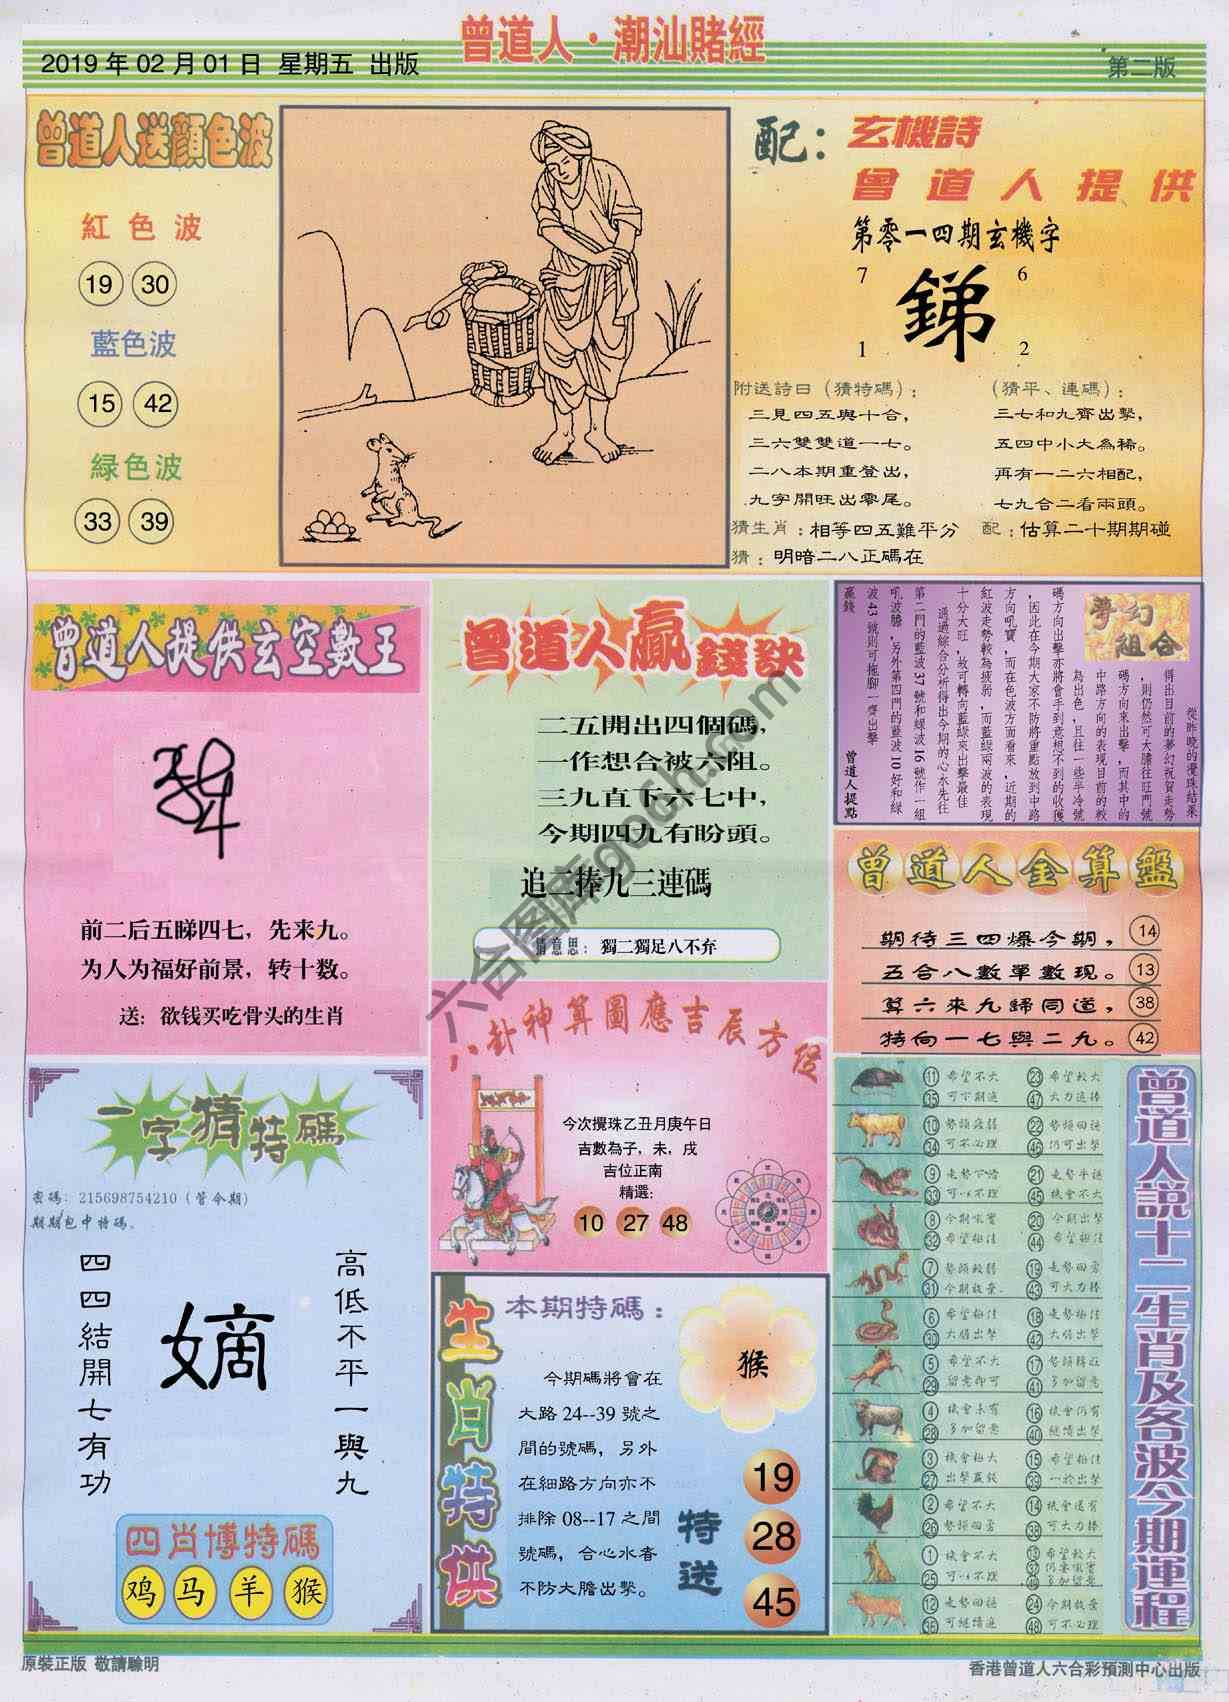 曾道人·潮汕賭經
2019 年 02 月 01 日 星期五 出版
第二版
曾道人送顏色波
紅色波
19 30
藍色波
15 42
緑色波
33 39
配：玄機詩
曾道人提供
第零一四期玄機字
7 6
銻
1 2
附送詩曰（猜特碼）：
三見四五與十合，
三六雙雙道一七。
二八本期重登出，
九字開旺出零尾。
（猜平、連碼）：
三七和九齊出擊，
五四中小大為稀。
再有一二六相配，
七九合二看兩頭。
猜生肖：相等四五難平分
配：估算二十期期碰
猜：明暗二八正碼在
曾道人提供玄空數王
前二后五睇四七，先来九。
为人为福好前景，转十数。
送：欲钱买吃骨头的生肖
曾道人贏錢訣
二五開出四個碼，
一作想合被六阻。
三九直下六七中，
今期四九有盼頭。
追二捧九三連碼
猜意思：獨二獨足八不弃
夢幻組合
從昨晚的攪珠結果
得出目前的夢幻祝賀走勢
，則仍然可大膽往旺門號
碼方向來出擊，而其中的
中路方向的表現目前的較
為出色，且往一些半冷號
碼方向出擊亦將會手到意想不到的收獲
，因此在今期大家不防將重點放到中路
方向吼寶，而在色波方面看來，近期的
紅波走勢較為疲弱，而藍綠兩波的表現
十分大旺，故可轉向藍綠來出擊最佳
通過綜合分析得出今期的心水先往
第二門的藍波 37 號和綠波 16 號作一組
吼波膽，另外第四門的藍波 10 好和綠
波 43 號則可拖腳一齊出擊
贏錢
曾道人提點
曾道人金算盤
期待三四爆今期， 14
五合八數單數現。 13
算六來九歸同道， 38
特向一七與二九。 42
八卦神算圖應吉辰方位
今次攪珠乙丑月庚午日
吉數為子，未，戌
吉位正南
精選：
10 27 48
一字猜特碼
密碼：215698754210（管今期）
期期包中特碼。
高低不平一與九
嫡
四四結開七有功
四肖博特碼
鸡 马 羊 猴
生肖特供
本期特碼：
猴
今期碼將會在
大路 24--39 號之
間的號碼，另外
在細路方向亦不
排除 08--17 之間
號碼，合心水者
不防大膽出擊。
特送
19
28
45
曾道人説十二生肖及各波今期運程
11 希望不大 23 希望較大
35 可下期追 47 大力追捧
10 勢頭疲弱 22 勢頭回穩
34 可不必理 46 仍可出擊
9 走勢下滑 21 走勢平穩
33 可以不理 45 機會不大
8 今期吼寶 20 今期出擊
32 希望極佳 44 希望極佳
7 勢頭較弱 19 走勢回勇
31 今期放棄 43 可大力捧
6 走勢極佳 18 走勢極佳
30 大膽出擊 42 大膽出擊
5 希望不大 17 勢頭轉旺
29 留意即可 41 多加留意
4 機會未有 16 機會仍有
28 多加留意 40 繼續出擊
3 機會極大 15 希望極佳
27 出擊贏錢 39 一於出擊
2 希望不大 14 機會還有
26 勢頭回勇 38 可大力捧
1 機會不大 13 希望較大
25 可以不理 37 仍要吼寶
49 多加留意
12 走勢回穩 24 今期放棄
36 可繼續追 48 可不必理
原裝正版 敬請驗明
香港曾道人六合彩預測中心出版
六合图库gocnt.com